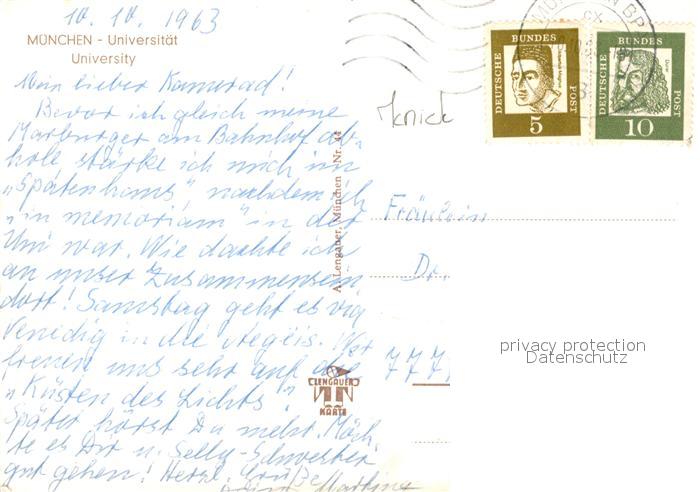 10.10.1963
MÜNCHEN - Universität
University
Mein lieber Kamerad!
Bevor ich gleich meine
Marburger am Bahnhof ab-
hole stärke ich mich im
„Spatenhaus" nachdem ich
„in memoriam" in der
Uni war. Wie dachte ich
an unser Zusammensein
dort! Samstag geht es via
Venedig in die Aegäis. Wir
freuen uns sehr auf die
„Küsten des Lichts".
Später hörst Du mehr. Möch-
te es Dir u. Selly-Schwester
gut gehen! Herzl. Grüße
Martina
knick
A. Lengauer, München Nr. 44
LENGAUER
KARTE
MÜNCHEN BP
CX
DEUTSCHE BUNDES POST
5
DEUTSCHE BUNDES POST
10
Fräulein
Dr.
777
privacy protection
Datenschutz